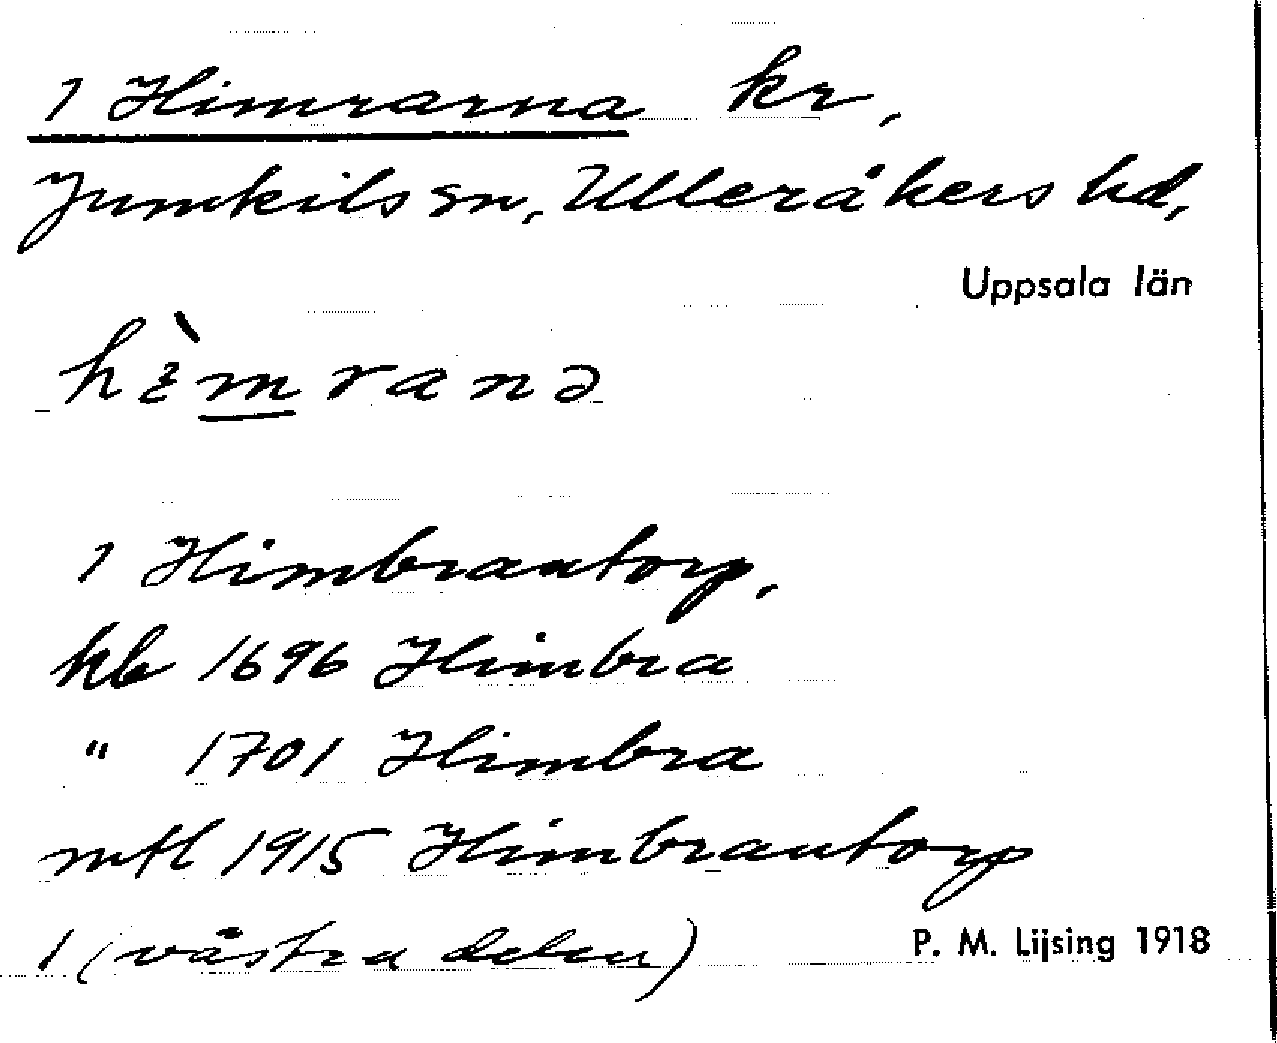 1 Himrarna kr,
Jumkils sn, Ulleråkers hd,
Uppsala län
hèmranə
1 Himbrantorp,
kb 1696 Himbra
" 1701 Himbra
mtl 1915 Himbrantorp
1 (västra delen)
P. M. Lijsing 1918